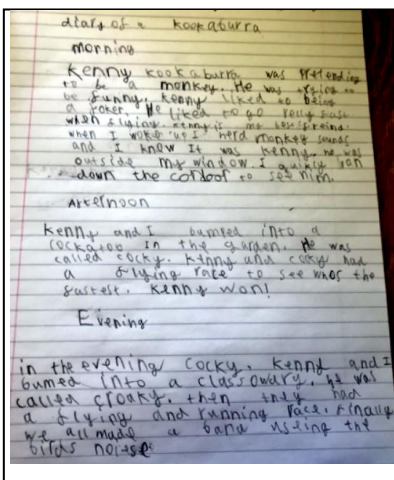 diary of a kookaburra
morning
Kenny kookaburra was pretending
to be a monkey. He was trying to
be funny. Kenny liked to being
a joker. He liked to go relly fast
when flying. Kenny is my best freind.
when I woke up I herd monkey sounds
and I knew It was Kenny. he was
outside my window. I quikly ran
down the coridoor to see him.
Afternoon
Kenny and I bumped into a
cockatoo in the garden. He was
called cocky. Kenny and cocky had
a flying race to see whos the
fastest. Kenny won!
Evening
in the evening cocky, Kenny and I
bumed into a classowary. he was
called croaky. then they had
a flying and running race. Finally
we all made a band useing the
birds noises